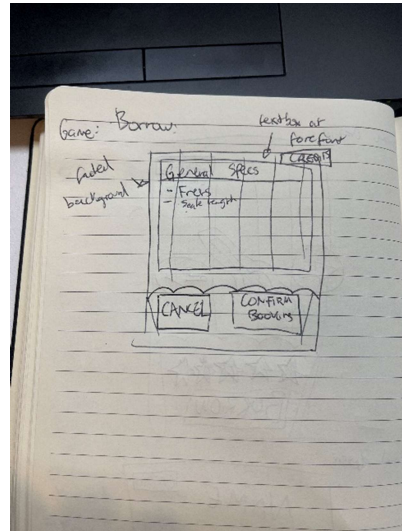 Game: Borrow:
textbox at
forefront
faded
background
CREDITS
General Specs
- Frets
- Scale length
CANCEL
CONFIRM
BOOKING